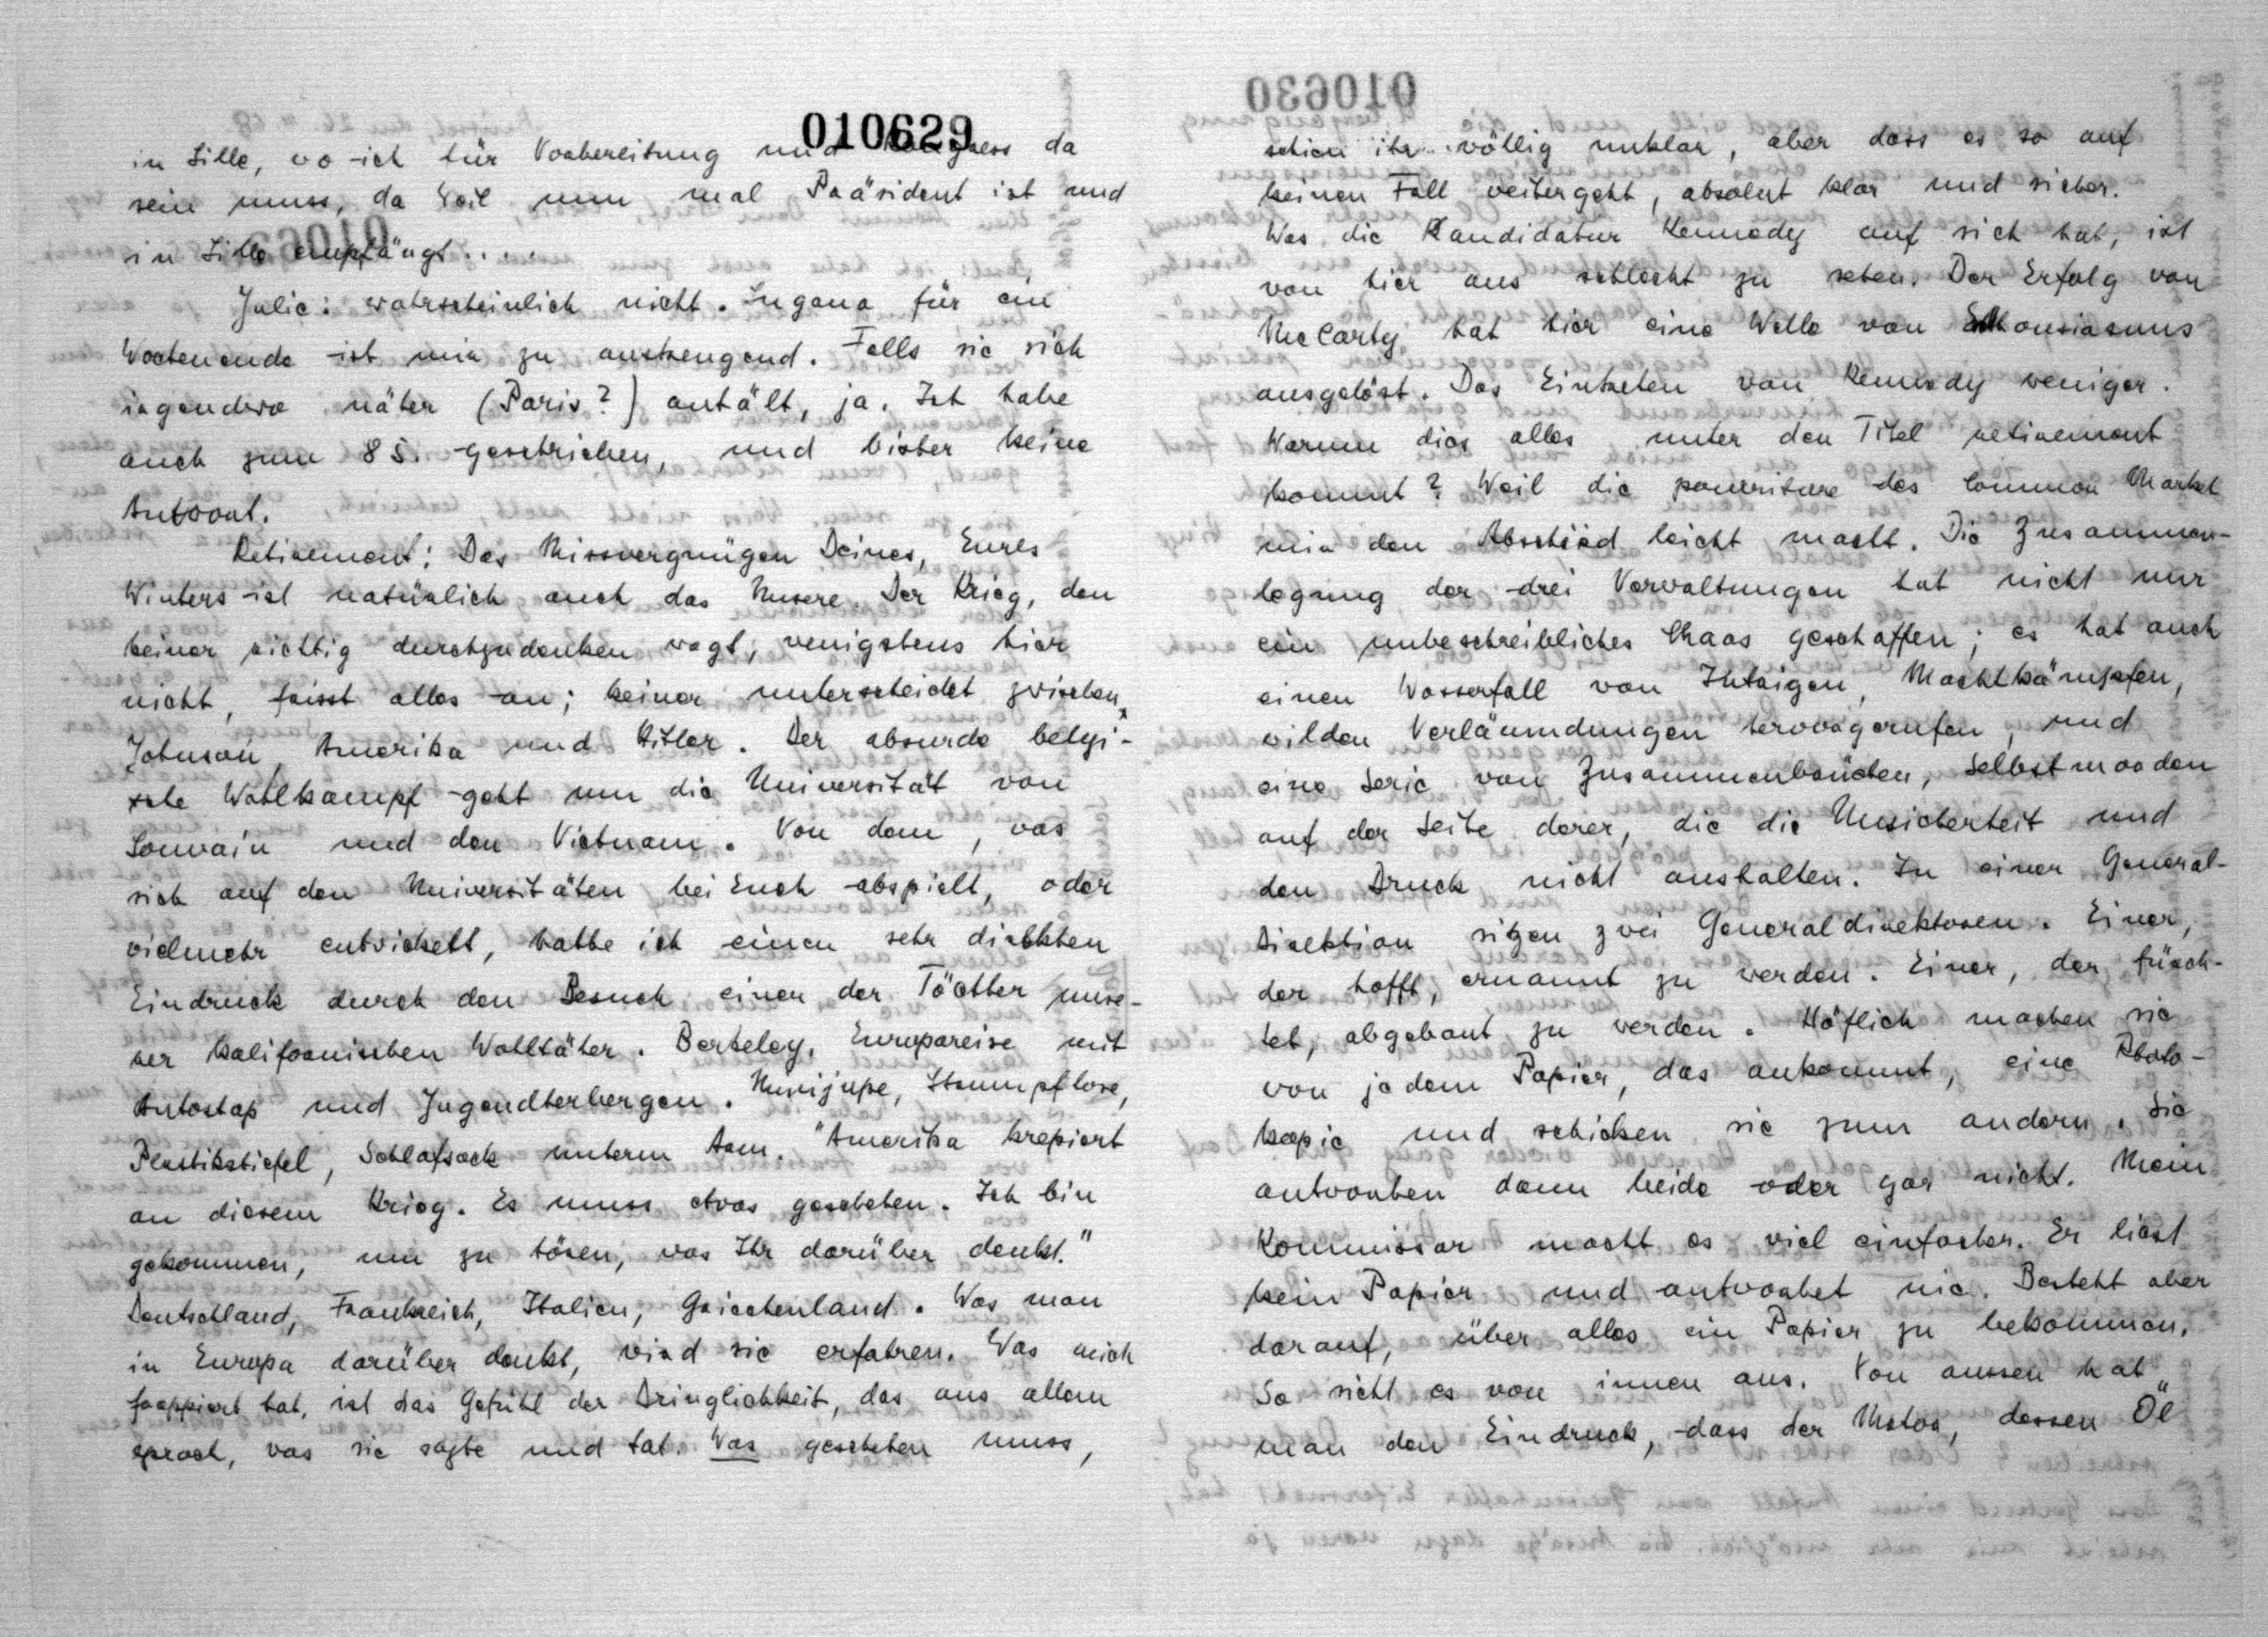 010629
in Lille, wo ich für Vorbereitung und Kongress da
sein muss, da Weil nun mal Präsident ist und
in Lille empfängt....
Julie: wahrscheinlich nicht. Lugano für ein
Wochenende ist mir zu anstrengend. Falls sie sich
irgendwo näher (Paris?) aufhält, ja. Ich habe
auch zum 85. geschrieben, und bisher keine
Antwort.
Retirement: Das Missvergnügen Deines, Eures
Winters ist natürlich auch das Unsere. Der Krieg, den
keiner richtig durchzudenken wagt, wenigstens hier
nicht, frisst alles an; keiner unterscheidet zwischen
Johnson, Amerika und Hitler. Der absurde belgi-
sche Wahlkampf geht um die Universität von
Louvain und den Vietnam. Von dem, was
sich auf den Universitäten bei Euch abspielt, oder
vielmehr entwickelt, hatte ich einen sehr direkten
Eindruck durch den Besuch einer der Töchter unse-
rer kalifornischen Wohltäter. Berkeley, Europareise mit
Autostop und Jugendherbergen. Minijupe, Strumpflose,
Plastikstiefel, Schlafsack unterm Arm. "Amerika krepiert
an diesem Krieg. Es muss etwas geschehen. Ich bin
gekommen, um zu hören, was Ihr darüber denkt."
Deutschland, Frankreich, Italien, Griechenland. Was man
in Europa darüber denkt, wird sie erfahren. Was mich
frappiert hat, ist das Gefühl der Dringlichkeit, das aus allem
sprach, was sie sagte und tat. Was geschehen muss,
010630
schien ihr völlig unklar, aber dass es so auf
keinen Fall weitergeht, absolut klar und sicher.
Was die Kandidatur Kennedy auf sich hat, ist
von hier aus schlecht zu sehen. Der Erfolg von
McCarty hat hier eine Welle von Enthousiasmus
ausgelöst. Das Eintreten von Kennedy weniger.
Warum dies alles unter den Titel retirement
kommt? Weil die pourriture des Common Market
mir den Abschied leicht macht. Die Zusammen-
legung der drei Verwaltungen hat nicht nur
ein unbeschreibliches Chaos geschaffen; es hat auch
einen Wasserfall von Intrigen, Machtkämpfen,
wilden Verläumdungen hervorgerufen, und
eine Serie von Zusammenbrüchen, Selbstmorden
auf der Seite derer, die die Unsicherheit und
den Druck nicht aushalten. In einer General-
direktion sitzen zwei Generaldirektoren. Einer,
der hofft, ernannt zu werden. Einer, der fürch-
tet, abgebaut zu werden. Höflich machen sie
von jedem Papier, das ankommt, eine Photo-
kopie und schicken sie zum andern. Sie
antworten dann beide oder gar nicht. Mein
Kommissar macht es viel einfacher. Er liest
kein Papier und antwortet nie. Besteht aber
darauf, über alles ein Papier zu bekommen.
So sieht es von innen aus. Von aussen hat
man den Eindruck, dass der Motor, dessen Öl